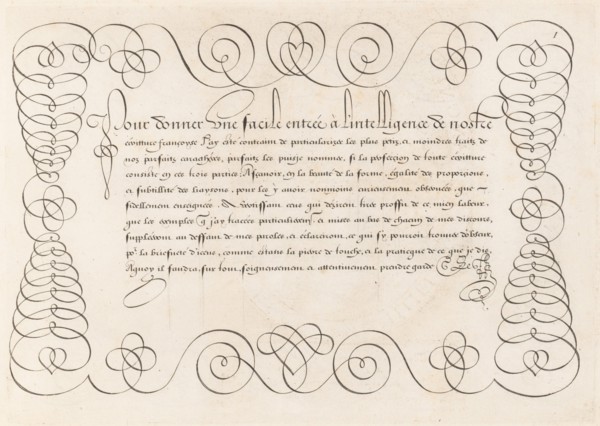 Pour donner une facile entrée à l'intelligence de nostre
écriture françoyse J'ay esté contraint de particularizer les plus petiz, et moindres traitz de
nos parfaitz caracthères, parfaitz les puis-je nommer, si la perfection de toute écriture
consiste en ces trois parties, Asçavoir, en la beauté de la forme, égalité des proportions,
et subtillité des liaysons, pour les y avoir nonmoins curieusement observées, que
fidellement enseignées. Avertissant ceux qui dezirent tirer proffit de ce mien labeur,
que les exemples q̃ j'ay tracées particulièrem̃t, et mises au bas de chacun de mes discours,
suppléeront au deffaut de mes paroles, et éclarciront, ce qui s'y pourroit trouver d'obscur,
po.r la briefveté d'iceux, comme estant la pierre de touche, et la praticque de ce que je dis,
Aquoy il faudra, sur tout, soigneusement et attentivement prendre garde
1